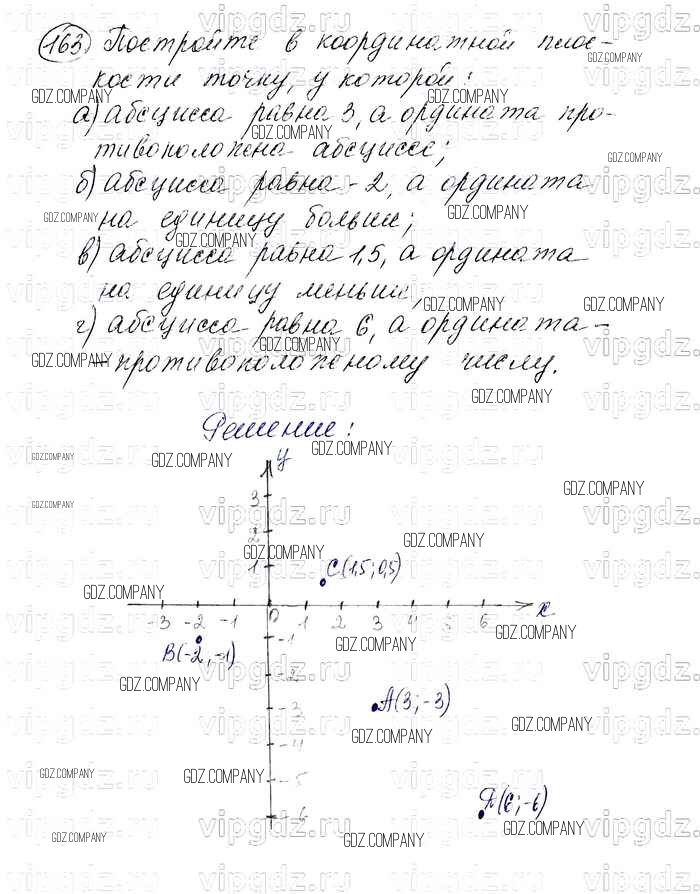 163 Постройте в координатной плос-
кости точку, у которой:
а) абсцисса равна 3, а ордината про-
тивоположна абсциссе;
б) абсцисса равна -2, а ордината
на единицу больше;
в) абсцисса равна 1,5, а ордината
на единицу меньше;
г) абсцисса равна 6, а ордината -
- противоположеному числу.
Решение:
y
3
2
1
C(1,5; 0,5)
-3 -2 -1 0 1 2 3 4 5 6 x
-1
B(-2, -1)
-2
-3
A(3; -3)
-4
-5
-6
Д(6; -6)
GDZ.COMPANY
vipgdz.ru